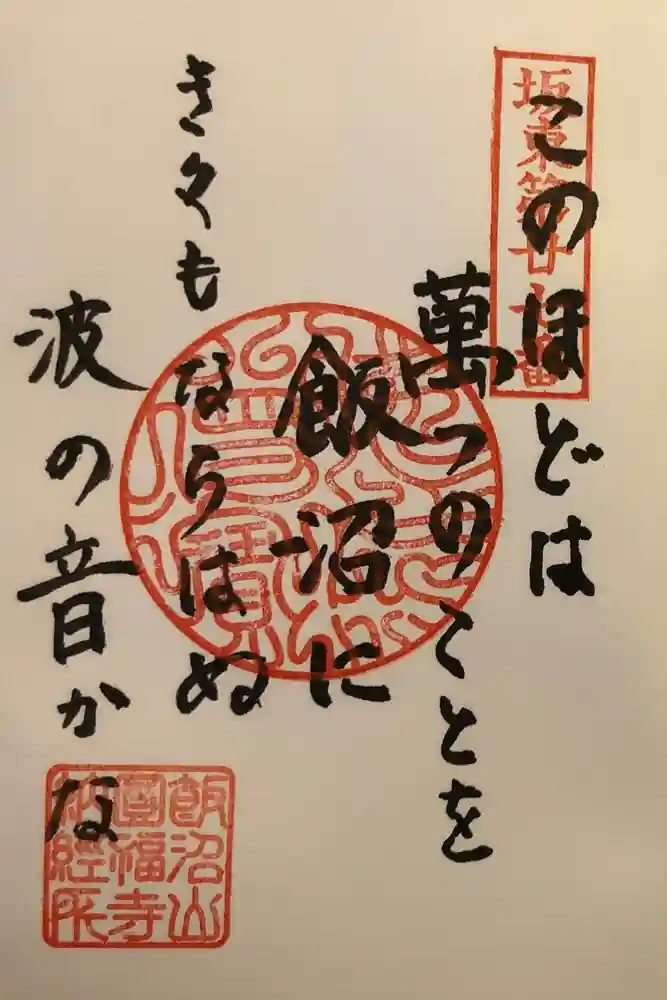 坂東第廿七番
このほどは
萬つのことを
飯沼に
きくも
ならはぬ
波の音かな
飯沼山
圓福寺
納經所